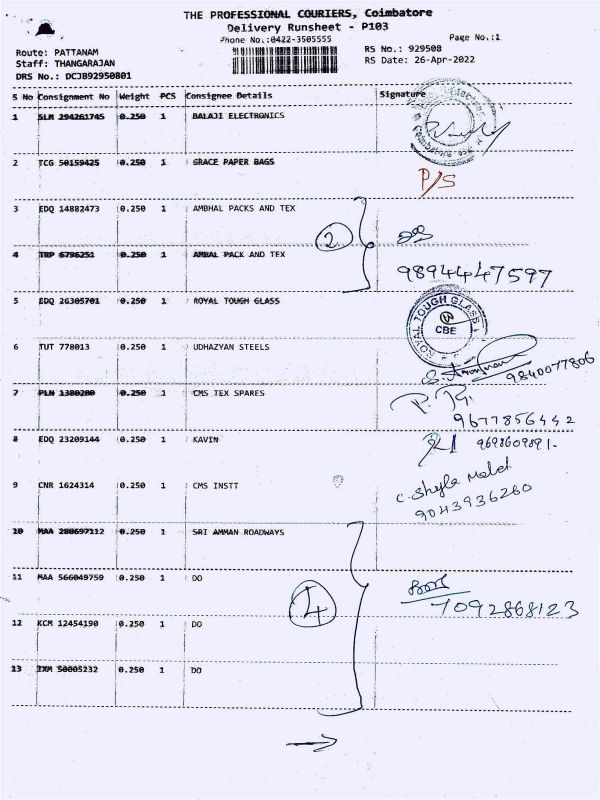 THE PROFESSIONAL COURIERS, Coimbatore
Delivery Runsheet - P103
Phone No.:0422-3505555
Page No.:1
Route: PATTANAM
RS No.: 929508
Staff: THANGARAJAN
RS Date: 26-Apr-2022
DRS No.: DCJB92950801
S No Consignment No Weight PCS Consignee Details Signature
1 SLM 294261745 0.250 1 BALAJI ELECTRONICS
2 TCG 50159425 0.250 1 GRACE PAPER BAGS
P/S
3 EDQ 14882473 0.250 1 AMBHAL PACKS AND TEX
2
4 TRP 6796251 0.250 1 AMBAL PACK AND TEX
9894447597
5 EDQ 26305701 0.250 1 ROYAL TOUGH GLASS
ROYAL TOUGH GLASS
CBE
6 TUT 778013 0.250 1 UDHAZYAN STEELS
9840077806
7 PLN 1380200 0.250 1 CMS TEX SPARES
9677856442
8 EDQ 23209144 0.250 1 KAVIN
9698609891-
9 CNR 1624314 0.250 1 CMS INSTT
C. Shyla
9043936260
10 MAA 280697112 0.250 1 SRI AMMAN ROADWAYS
11 MAA 566049759 0.250 1 DO
4
7092868123
12 KCM 12454190 0.250 1 DO
13 IXM 50005232 0.250 1 DO